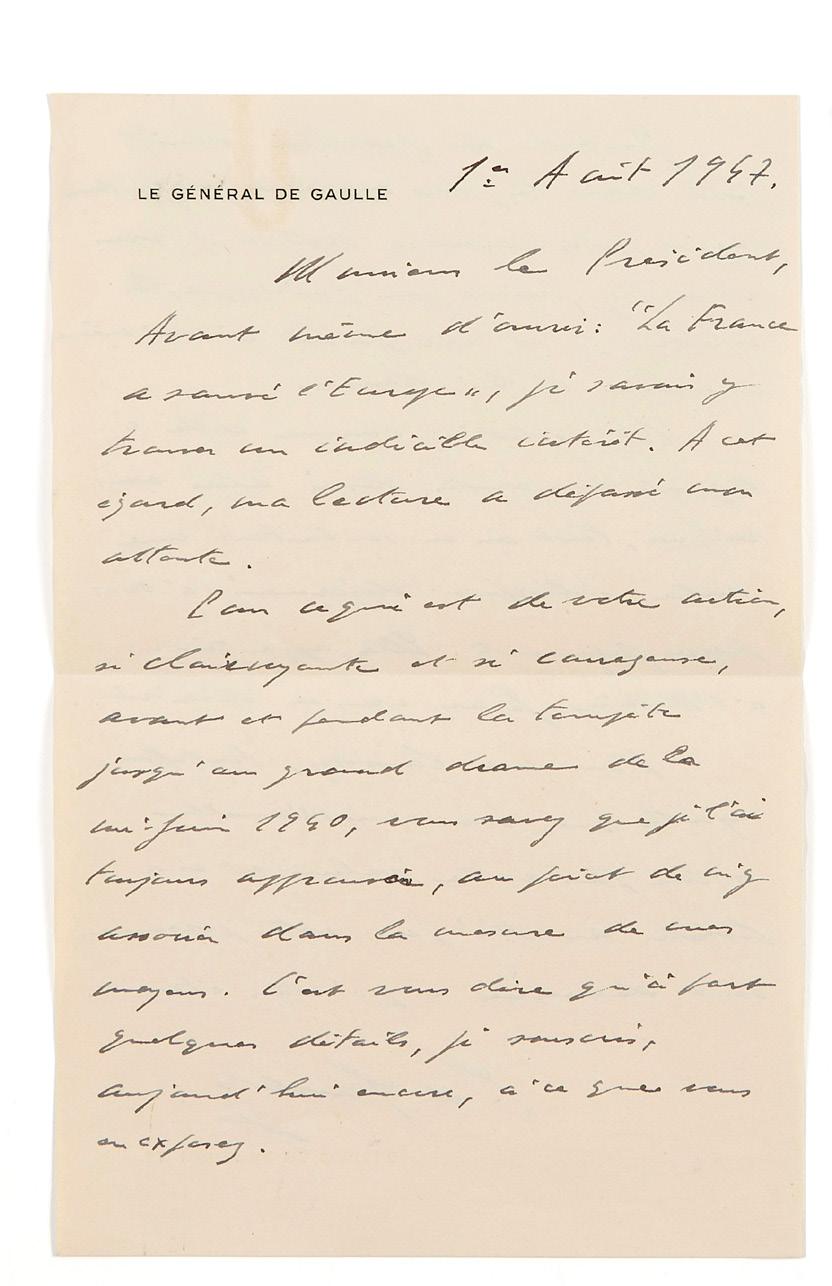 LE GÉNÉRAL DE GAULLE
1er Août 1947.
Monsieur le Président,
Avant même d'ouvrir : "La France
a sauvé l'Europe", je savais y
trouver un indicible intérêt. A cet
égard, ma lecture a dépassé mon
attente.
Pour ce qui est de votre action,
si clairvoyante et si courageuse,
avant et pendant la tempête
jusqu'au grand drame de la
mi-Juin 1940, vous savez que je l'ai
toujours approuvée, au point de m'y
associer dans la mesure de mes
moyens. C'est vous dire qu'à part
quelques détails, je souscris,
aujourd'hui encore, à ce que vous
en exposez.